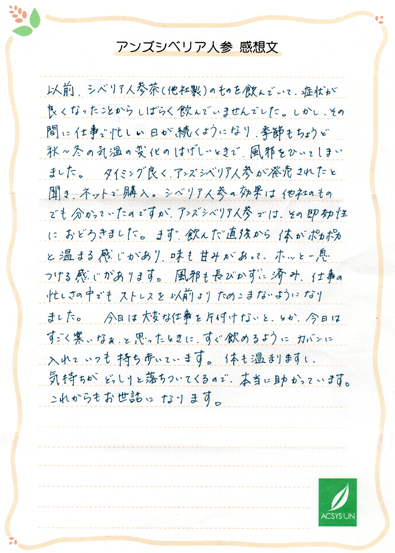 アンズシベリア人参 感想文
以前、シベリア人参茶(他社製)のものを飲んでいて、症状が
良くなったことからしばらく飲んでいませんでした。しかし、その
間に仕事で忙しい日が続くようになり、季節もちょうど
秋~冬の気温の変化のはげしいときで、風邪をひいてしまい
ました。 タイミング良く、アンズシベリア人参が発売されたと
聞き、ネットで購入。シベリア人参の効果は他社のもの
でも分かっていたのですが、アンズシベリア人参では、その即効性
におどろきました。まず、飲んだ直後から体がポカポカ
と温まる感じがあり、味も甘みがあって、ホッと一息
つける感じがあります。風邪も長びかずに済み、仕事の
忙しさの中でもストレスを以前よりためこまないようになり
ました。 今日は大変な仕事を片付けないと、とか、今日は
すごく寒いなぁ、と思ったときに、すぐ飲めるようにカバンに
入れていつも持ち歩いています。体も温まりますし、
気持ちがどっしりと落ちついてくるので、本当に助かっています。
これからもお世話になります。
ACSYSUN